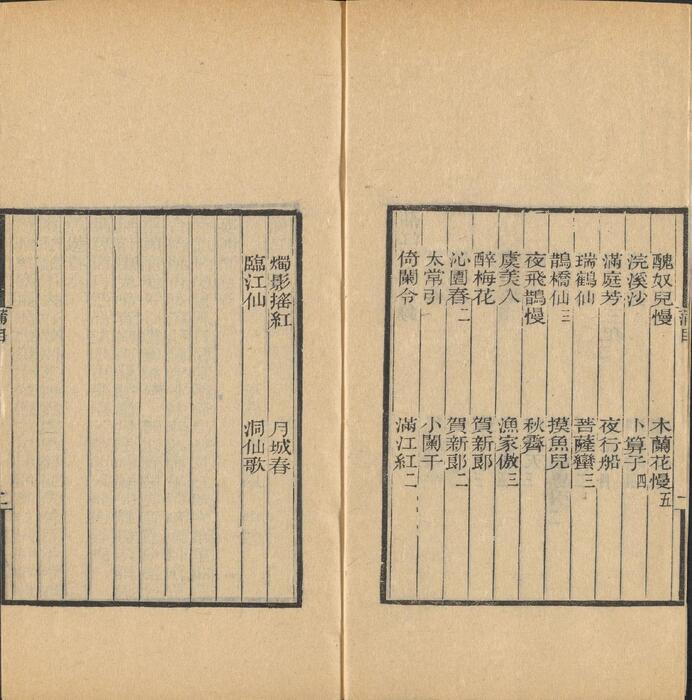 醜奴兒慢　木蘭花慢五
浣溪沙　卜算子四
滿庭芳　夜行船
瑞鶴仙　菩薩蠻三
鵲橋仙三　摸魚兒
夜飛鵲慢　秋霽
虞美人　漁家傲三
醉梅花　賀新郎
沁園春二　賀新郎二
太常引　小闌干
倚闌令　滿江紅二
燭影搖紅　月城春
臨江仙　洞仙歌